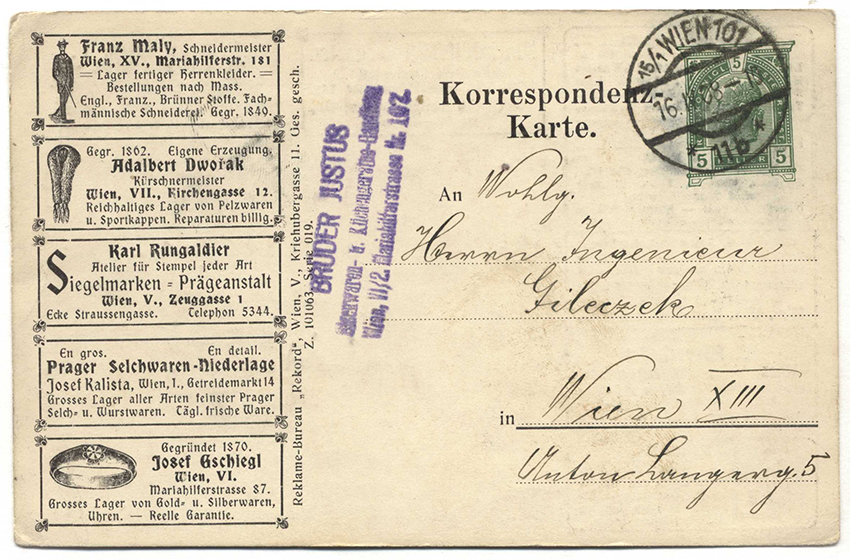 Franz Maly, Schneidermeister
Wien, XV., Mariahilferstr. 181
Lager fertiger Herrenkleider.
Bestellungen nach Mass.
Engl., Franz., Brünner Stoffe. Fach-
männische Schneiderei. Gegr. 1840.
Gegr. 1862. Eigene Erzeugung.
Adalbert Dwořak
Kürschnermeister
Wien, VII., Kirchengasse 12.
Reichhaltiges Lager von Pelzwaren
u. Sportkappen. Reparaturen billig.
Karl Rungaldier
Atelier für Stempel jeder Art
Siegelmarken = Prägeanstalt
Wien, V., Zeuggasse 1
Ecke Straussengasse. Telephon 5344.
En gros. En detail.
Prager Selchwaren-Niederlage
Josef Kalista, Wien, I., Getreidemarkt 14
Grosses Lager aller Arten feinster Prager
Selch- u. Wurstwaren. Tägl. frische Ware.
Gegründet 1870.
Josef Gschiegl
Wien, VI.
Mariahilferstrasse 87.
Grosses Lager von Gold- u. Silberwaren,
Uhren. — Reelle Garantie.
Reklame-Bureau „Rekord", Wien, V., Kriehubergasse 11. Ges. gesch.
Z. 101063. Serie 019.
BRÜDER JUSTUS
Blechwaren- u. Küchengeräthe-Handlung
Wien, VI/2. Mariahilferstrasse Nr. 107.
Korrespondenz-
Karte.
15/1 WIEN 101
16.
11b
5
5 HELLER 5
An Wohlg.
Herrn Ingenieur
Gileczek
in Wien XIII
Anton Langerg. 5